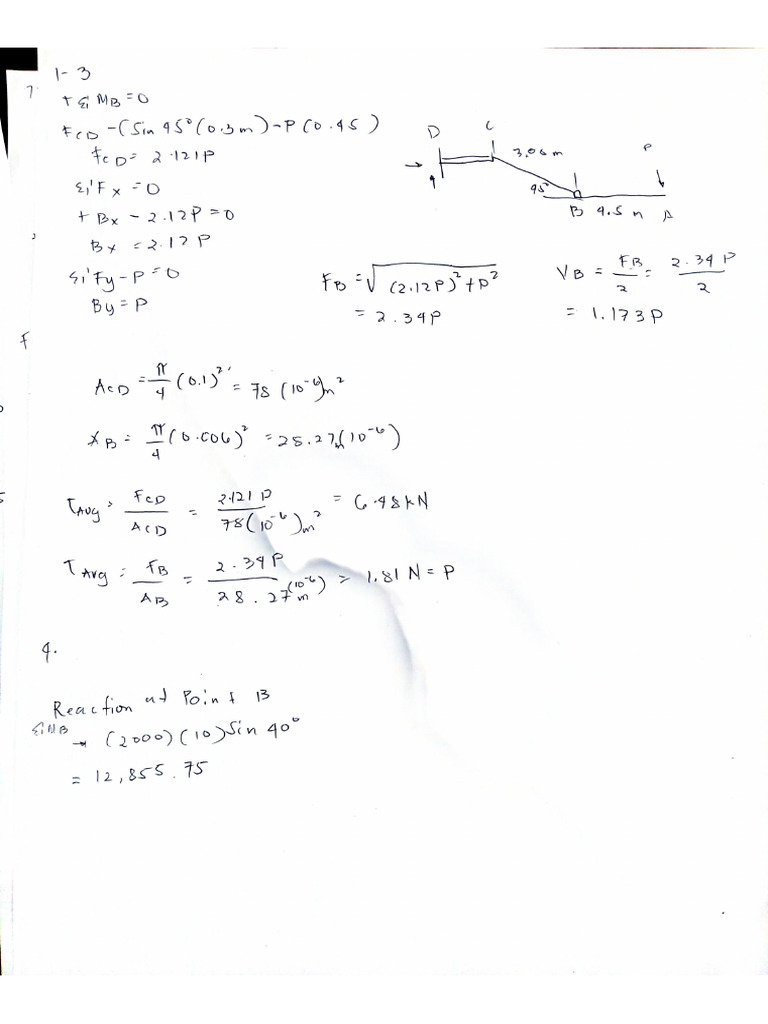 1-3
7.
+ Σ MB = 0
FCD - (Sin 45° (0.3m) - P (0.45)
FCD = 2.121P
Σ Fx = 0
+ Bx - 2.12P = 0
Bx = 2.12P
Σ Fy - P = 0
By = P
D C
3.06m P
45°
B 4.5 m A
FB = √(2.12P)² + P²
= 2.34P
VB = FB/2 = 2.34P/2
= 1.173P
F
ACD = π/4 (0.1)² = 78 (10⁻⁶)m²
AB = π/4 (0.006)² = 28.27(10⁻⁶)
TAvg = FCD/ACD = 2.121P/78(10⁻⁶)m² = 6.48kN
TAvg = FB/AB = 2.34P/28.27(10⁻⁶)m = 1.81N = P
4.
Reaction at Point B
ΣMB → (2000)(10) Sin 40°
= 12,855.75